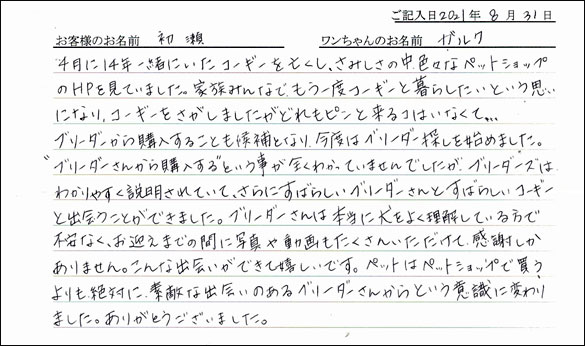 ご記入日2021年 8月 31日
お客様のお名前 初瀬 ワンちゃんのお名前 ガルク
4月に14年一緒にいたコーギーを亡くし、さみしさの中色々なペットショップ
のHPを見ていました。家族みんなで、もう一度コーギーと暮らしたいという思い
になり、コーギーをさがしましたがどれもピンと来るコはいなくて...
ブリーダーから購入することも候補となり、今度はブリーダー探しを始めました。
"ブリーダーさんから購入する"という事が全くわかっていませんでしたが、ブリーダーズは
わかりやすく説明されていて、さらにすばらしいブリーダーさんとすばらしいコーギー
と出会うことができました。ブリーダーさんは本当に犬をよく理解している方で
不安なく、お迎えまでの間に写真や動画もたくさんいただけて、感謝しか
ありません。こんな出会いができて嬉しいです。ペットはペットショップで買う
よりも絶対に、素敵な出会いのあるブリーダーさんからという意識に変わり
ました。ありがとうございました。